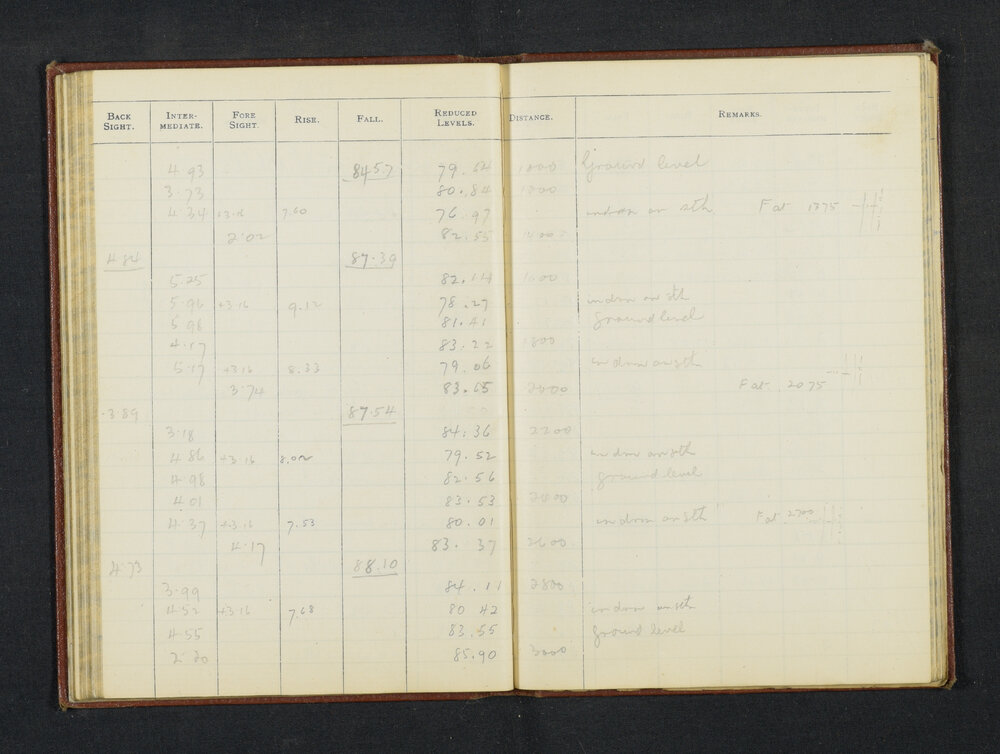 BACK SIGHT. INTERMEDIATE. FORE SIGHT. RISE. FALL. REDUCED LEVELS. DISTANCE. REMARKS.
4.93 84.57 79.64 1000 Ground level
3.73 80.84 1200
4.34 +3.16 7.60 76.97 in drn on sth Fat 1375
2.02 82.55
4.84 87.39
5.25 82.14 1600
5.96 +3.16 9.12 78.27 in drn on sth
5.98 81.41 Ground level
4.17 83.22 1800
5.17 +3.16 8.33 79.06 in drn on sth
3.74 83.65 2000 Fat 2075
3.89 87.54
3.18 84.36 2200
4.86 +3.16 8.02 79.52 in drn on sth
4.98 82.56 ground level
4.01 83.53 2400
4.37 +3.16 7.53 80.01 in drn on sth Fat 2700
4.17 83.37 2600
4.73 88.10
3.99 84.11 2800
4.52 +3.16 7.68 80.42 in drn on sth
4.55 83.55 Ground level
2.20 85.90 3000